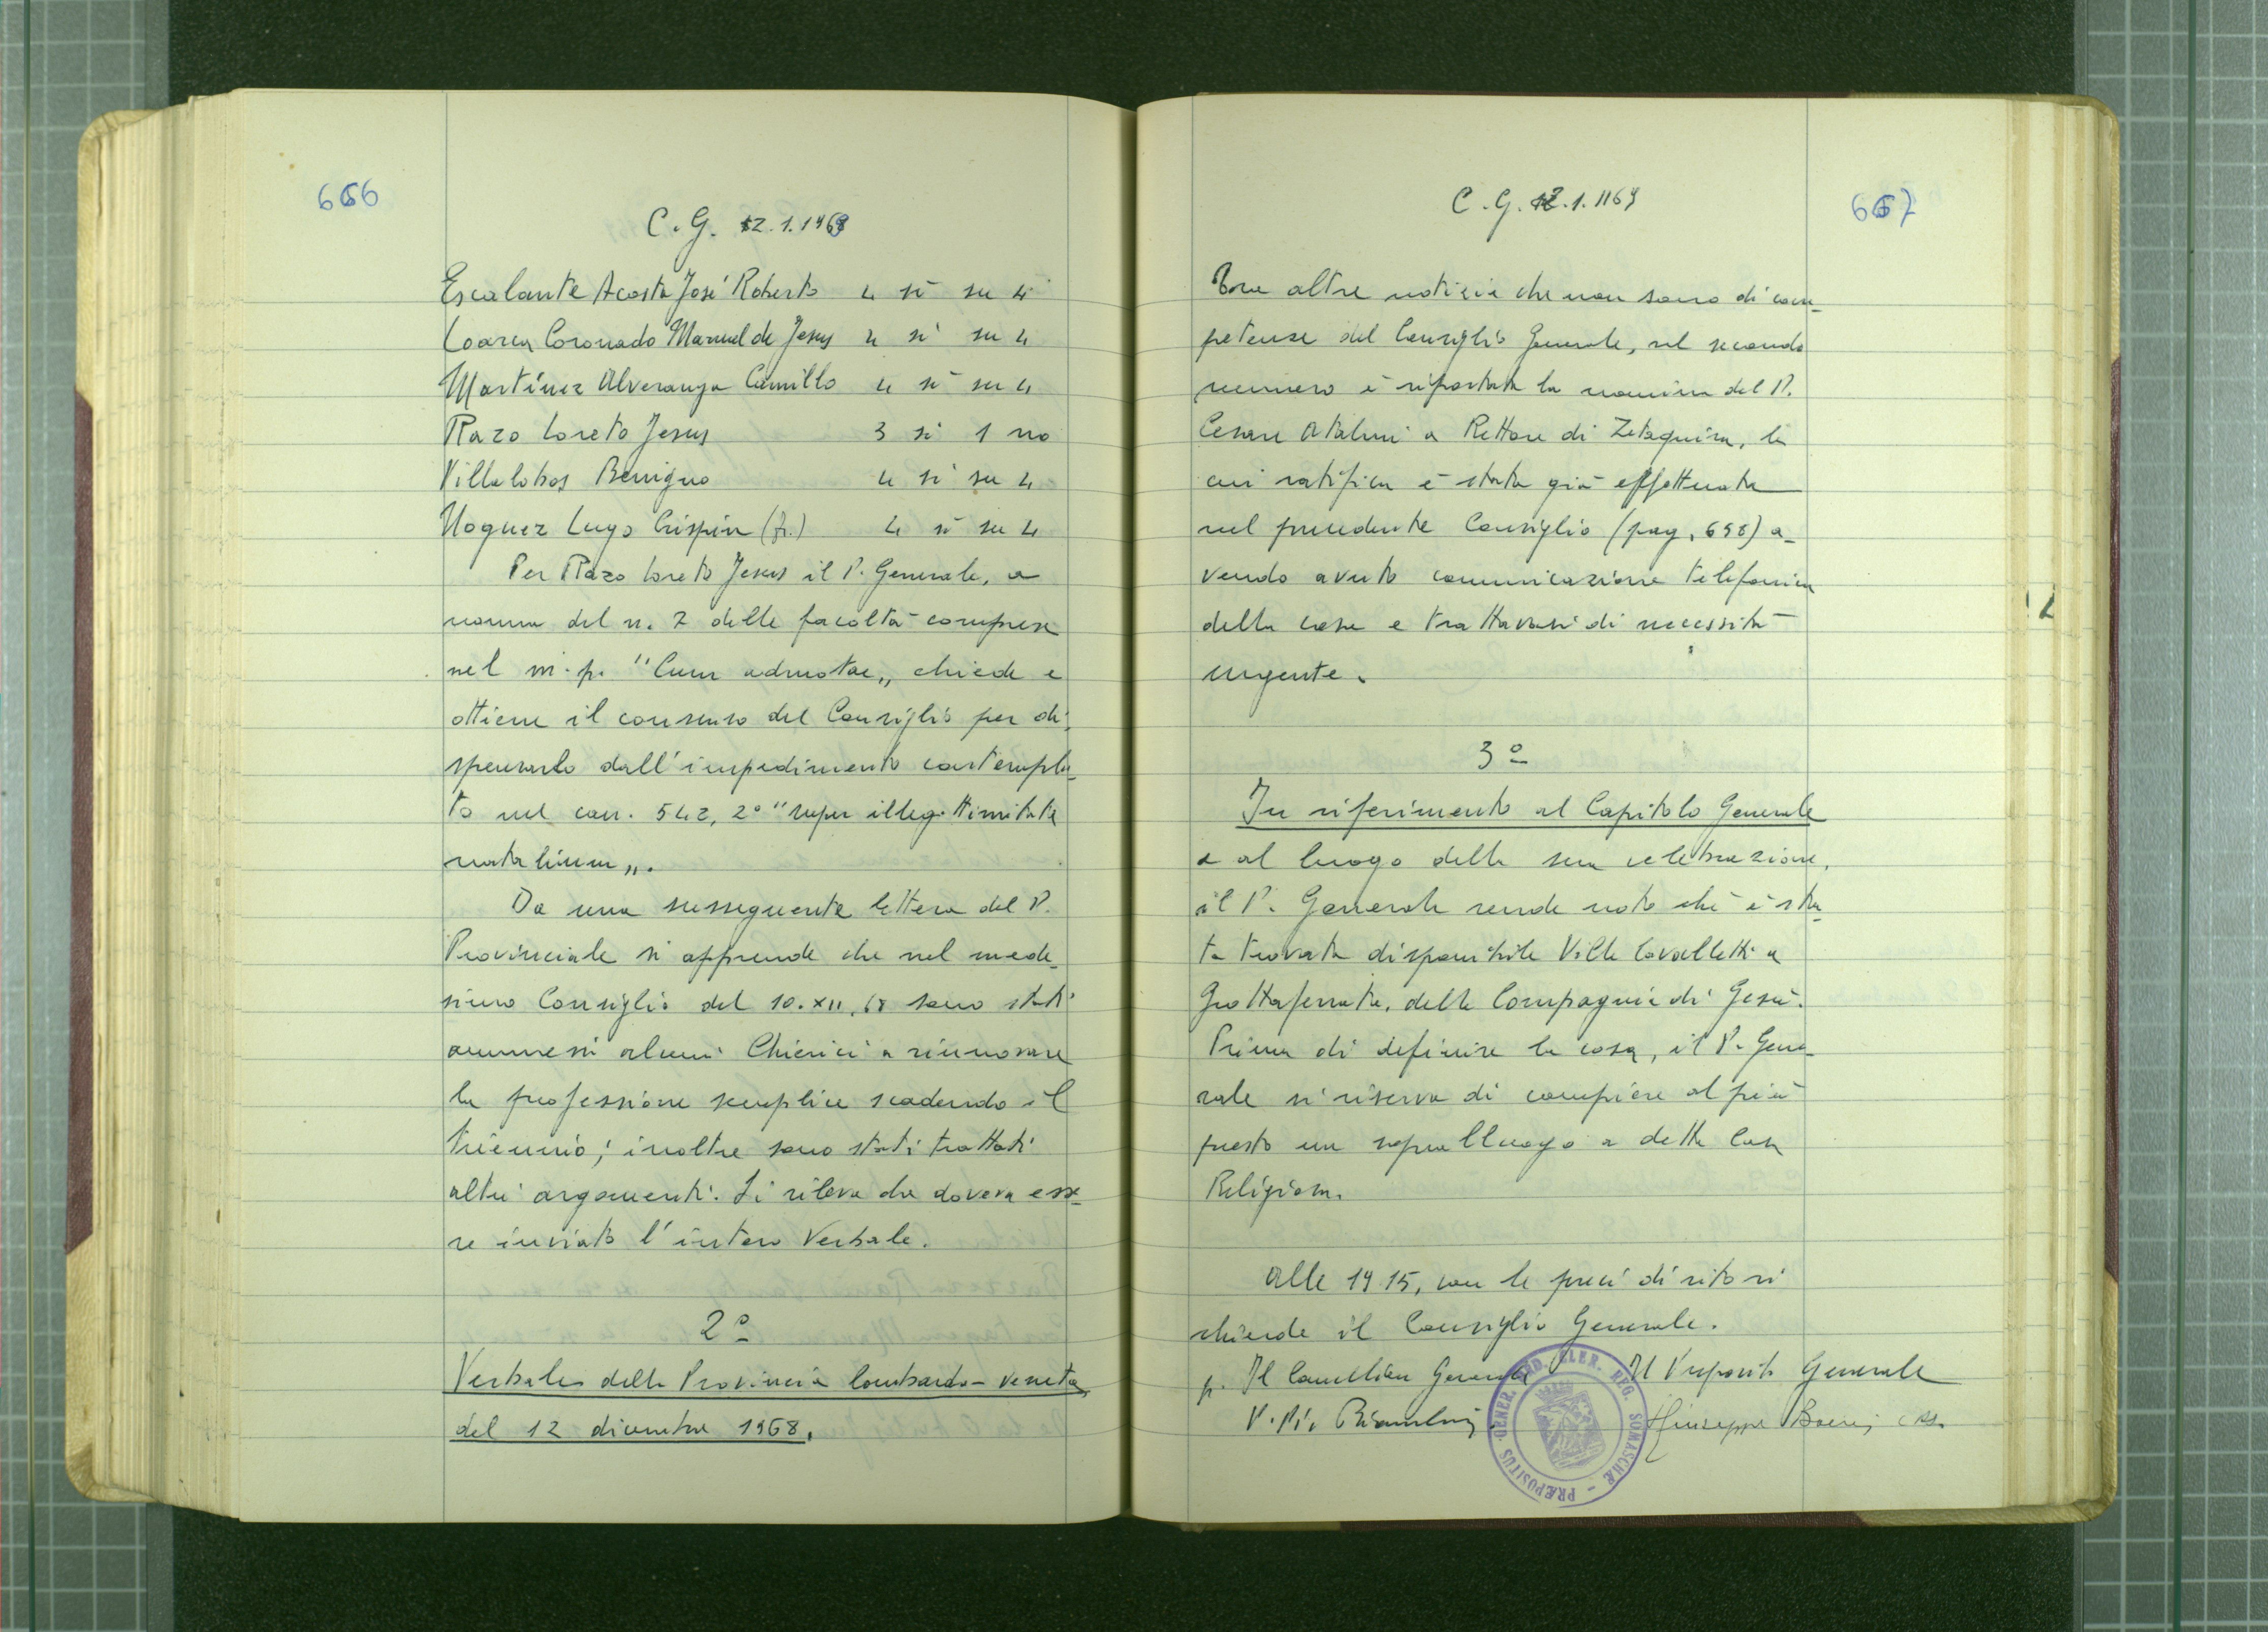 666
C. G. 12.1.1969
Escalante Acosta José Roberto 4 sì su 4
Loarca Coronado Manuel de Jesus 4 sì su 4
Martínez Alveranga Camillo 4 sì su 4
Razo Loreto Jesus 3 sì 1 no
Villalobos Benigno 4 sì su 4
Noguez Lugo Crispin (fr.) 4 sì su 4
Per Razo Loreto Jesus il P. Generale, a
norma del n. 7 delle facoltà comprese
nel m. p. "Cum admotae„ chiede e
ottiene il consenso del Consiglio per di-
spensarlo dall'impedimento contempla-
to nel can. 542, 2° "super illegittimitate
natalium„.
Da una susseguente lettera del P.
Provinciale si apprende che nel mede-
simo Consiglio del 10.XII.68 sono stati
ammessi alcuni Chierici a rinnovare
la professione semplice scadendo il
triennio; inoltre sono stati trattati
altri argomenti. Si rileva che doveva esse-
re inviato l'intero Verbale.
2º
Verbale della Provincia lombardo-veneta
del 12 dicembre 1968.
667
C. G. 12.1.1169
Tra altre notizie che non sono di com-
petenze del Consiglio Generale, nel secondo
numero è riportata la nomina del P.
Cesare Atalmi a Rettore di Zetaquira, la
cui ratifica è stata già effettuata
nel precedente Consiglio (pag. 658) a-
vendo avuto comunicazione telefonica
della cosa e trattavasi di necessità
urgente.
3º
In riferimento al Capitolo Generale
e al luogo della sua celebrazione,
il P. Generale rende noto che è sta-
ta trovata disponibile Villa Cavalletti a
Grottaferrata, della Compagnia di Gesù.
Prima di definire la cosa, il P. Gene-
rale si riserva di compiere al più
presto un sopralluogo a detta Casa
Religiosa.
Alle 19.15, con le preci di rito si
chiude il Consiglio Generale.
p. Il Cancelliere Generale Il Preposito Generale
P. Pio Bianchini Giuseppe Boeris crs.
PRÆPOSITUS GENER. ORD. CLER. REG. SOMASCHÆ